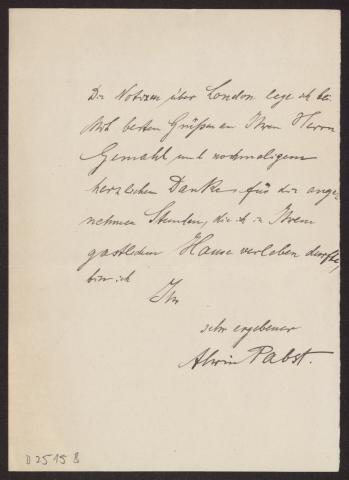 Die Notizen über London lege ich bei.
Mit besten Grüßen an Ihren Herrn
Gemahl und nochmaligem
herzlichen Danke für die ange-
nehmen Stunden, die ich in Ihrem
gastlichen Hause verleben durfte,
bin ich
Ihr
sehr ergebener
Alwin Pabst.
D 2515 B